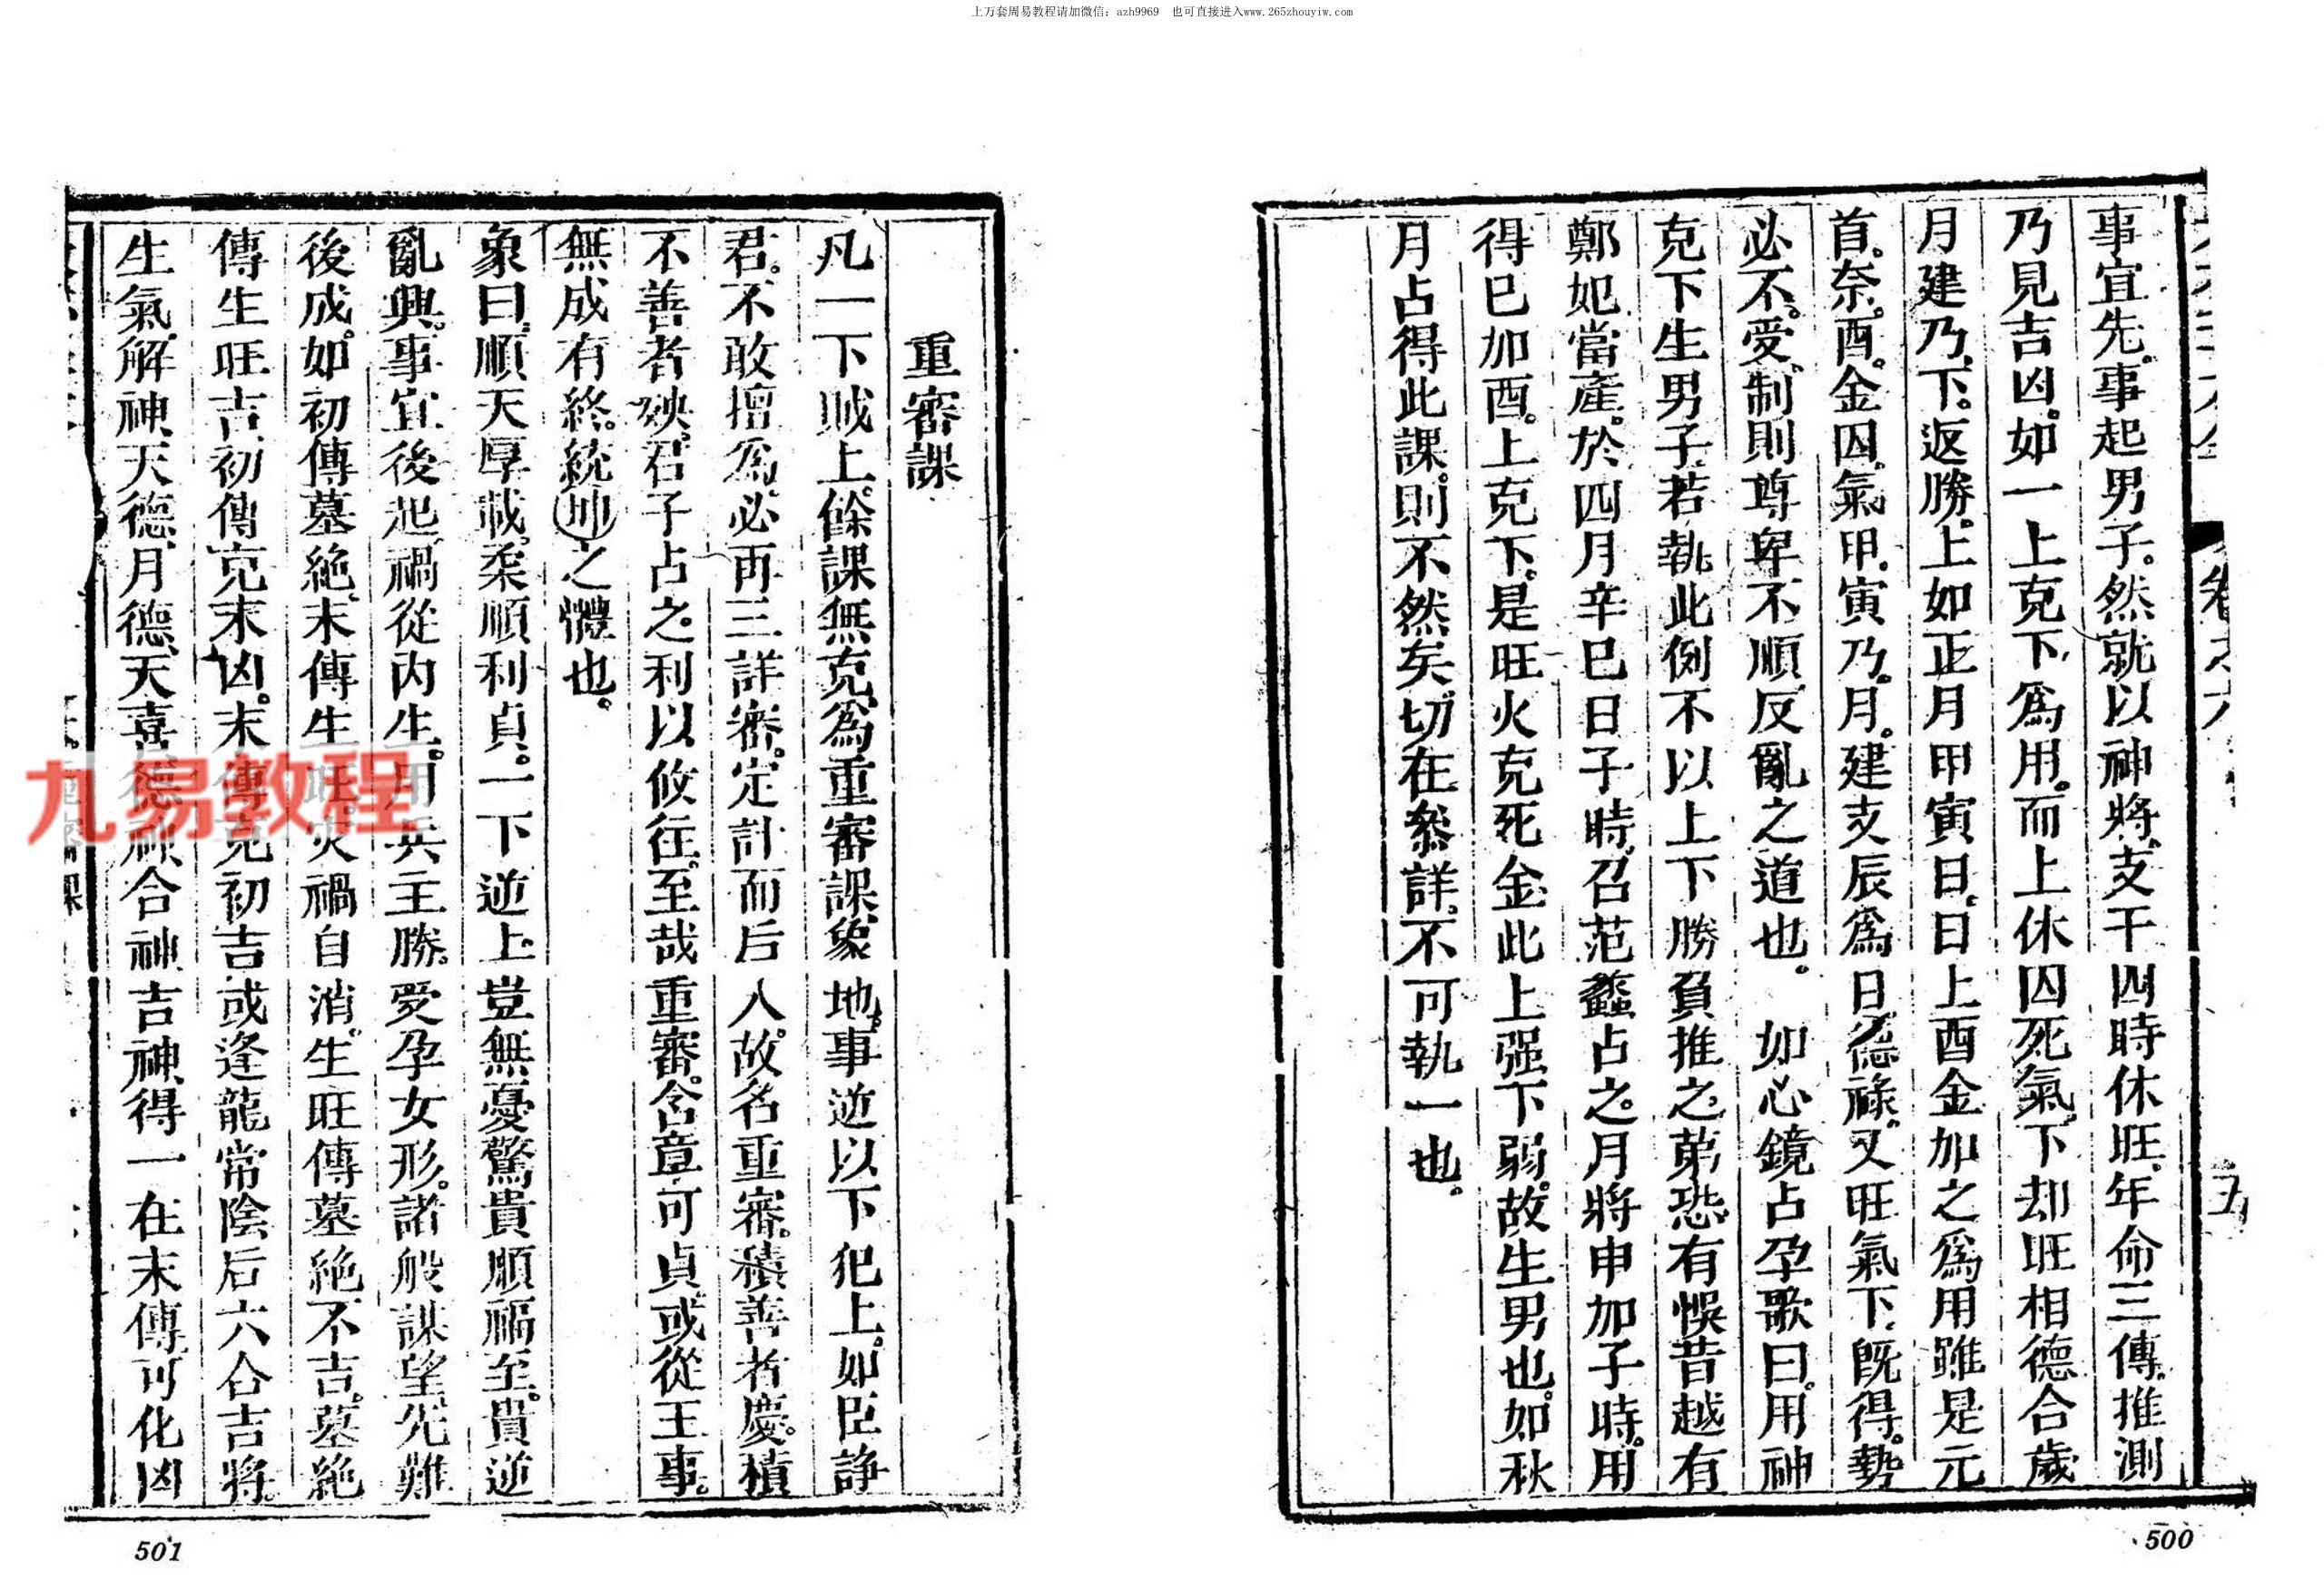 上万套周易教程请加微信：azh9969　也可直接进入www.265zhouyiw.com
事宜先。事起男子。然就以神將、支干四時休旺、年命三傳、推測
乃見吉凶。如一上克下、爲用。而上休囚死氣、下却旺相德合歲
月建乃、下。返勝。上如正月甲寅日、日上酉金加之爲用雖是元
首。奈。酉。金囚氣甲、寅乃。月。建支辰爲日德祿、又旺氣下、旣得。勢
必不。受、制則尊卑不順、反亂之道也。如心鏡占孕歌曰。用神
克下生男子、若執此例不以上下勝負推之、第恐有悞昔越有
鄭妃當產。於四月辛巳日子時、召范蠡占之。月將申加子時。用
得巳加酉。上克下。是旺火克死金、此上强下弱。故生男也。如秋
月占得此課。則不然矣、切在叅詳、不可執一也。
五
500
重審課
凡一下賊上。餘課無克、爲重審課、象地。事逆以下犯上。如臣諍
君。不敢擅爲、必再三詳審。定計而后人。故名重審。積善者慶。積
不善者殃。君子占之、利以攸往。至哉重審。含章可貞、或從王事。
無成有終。統坤之體也。
象曰、順天厚載。柔順利貞。一下逆上、豈無憂驚貴順福至。貴逆
亂興。事宜後起、禍從內生。用兵主勝。受孕女形。諸般謀望、先難
後成。如初傳墓絶、末傳生旺。灾禍自消。生旺傳墓絶不吉。墓絶
傳生旺吉、初傳克末凶。末傳克初吉、或逢龍常陰后六合吉將。
生氣、解神、天德、月德、天喜、德神、合神、吉神、得一在末傳、可化凶
501
九易教程